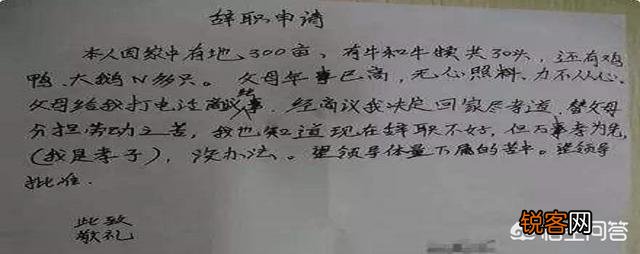 辞职申请
本人因家中有地300亩、有牛和牛犊共30头，还有鸡
鸭、大鹅N多只。父母年事已高，无心照料、力不从心。
父母给我打电话商议事，经商议我决定回家尽孝道，替父母
分担劳动之苦，我也知道现在辞职不好，但万事孝为先
(我是孝子)，没办法。望领导体量下属的苦中。望领导
批准.
此致
敬礼
锐客网
悟空问答